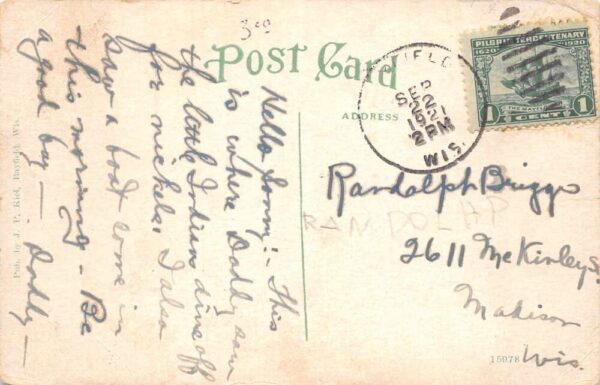 3-09
Post Card
ADDRESS
FIELD
SEP
22
1921
2 PM
WIS.
PILGRIM TERCENTENARY
1620
1920
THE MAYFLOWER
1
CENT
1
Hello Sonny:- This
is where Daddy saw
the little Indian dive off
for nickels. I also
saw a boat come in
this morning - Be
a good boy - Daddy -
Randolph Briggs
RANDOLHP
2611 McKinley St.
Madison
Wis.
15978
Pub. by J. P. Kiel, Bayfield, Wis.